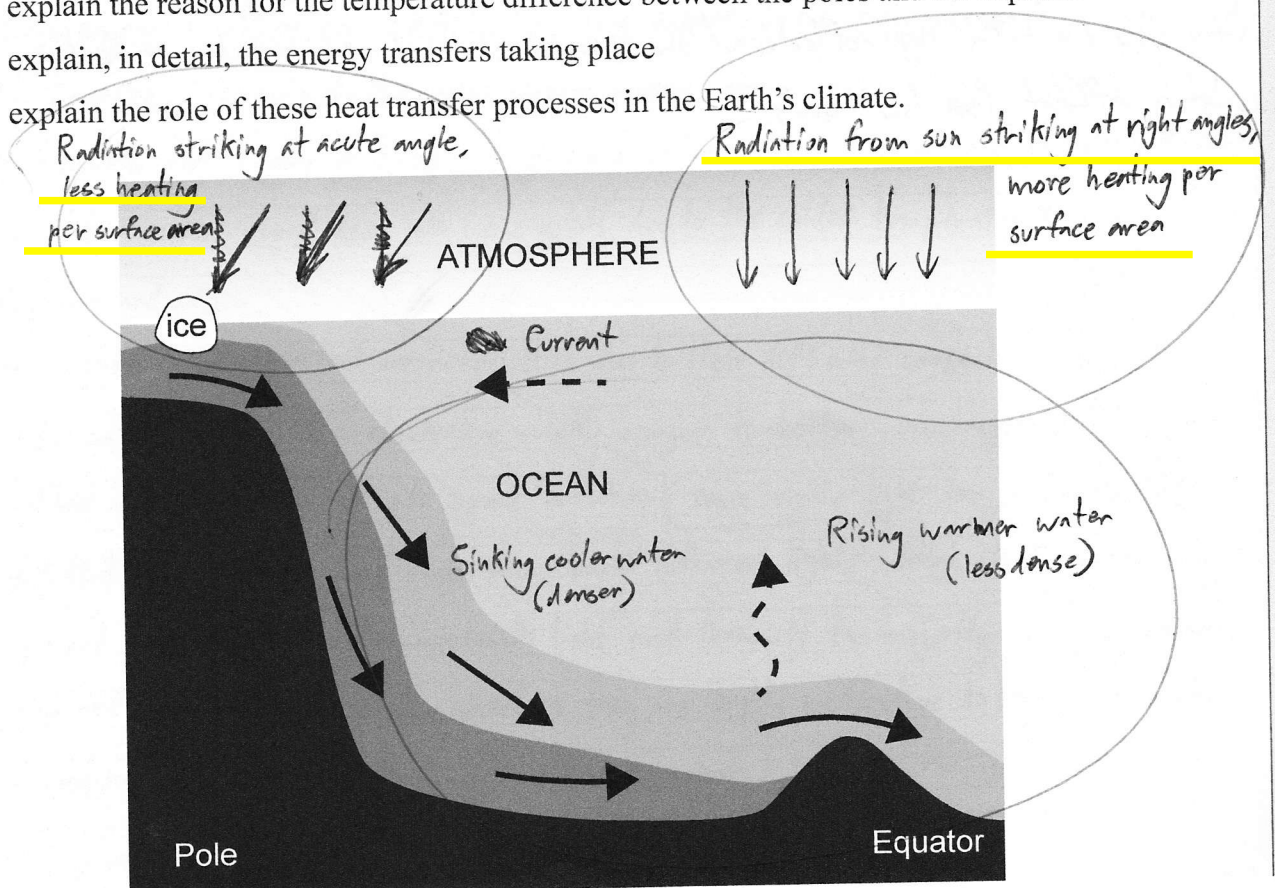 explain the reason for the temperature difference between the poles and
explain, in detail, the energy transfers taking place
explain the role of these heat transfer processes in the Earth's climate.
Radiation striking at acute angle,
less heating
per surface area
Radiation from sun striking at right angles,
more heating per
surface area
ATMOSPHERE
ice
Current
OCEAN
Sinking cooler water
(denser)
Rising warmer water
(less dense)
Pole
Equator